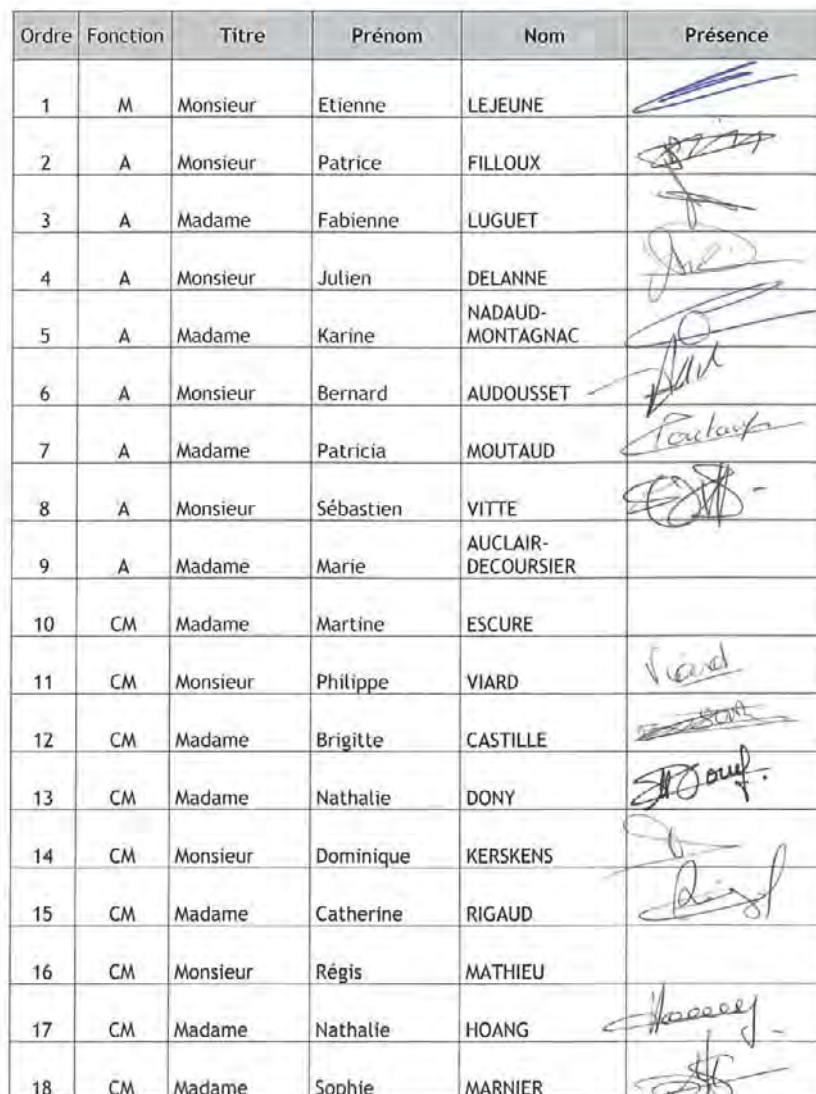 Ordre Fonction Titre Prénom Nom Présence
1 M Monsieur Etienne LEJEUNE
2 A Monsieur Patrice FILLOUX
3 A Madame Fabienne LUGUET
4 A Monsieur Julien DELANNE
5 A Madame Karine NADAUD-
MONTAGNAC
6 A Monsieur Bernard AUDOUSSET
7 A Madame Patricia MOUTAUD
8 A Monsieur Sébastien VITTE
9 A Madame Marie AUCLAIR-
DECOURSIER
10 CM Madame Martine ESCURE
11 CM Monsieur Philippe VIARD Viard
12 CM Madame Brigitte CASTILLE
13 CM Madame Nathalie DONY
14 CM Monsieur Dominique KERSKENS
15 CM Madame Catherine RIGAUD
16 CM Monsieur Régis MATHIEU
17 CM Madame Nathalie HOANG
18 CM Madame Sophie MARNIER